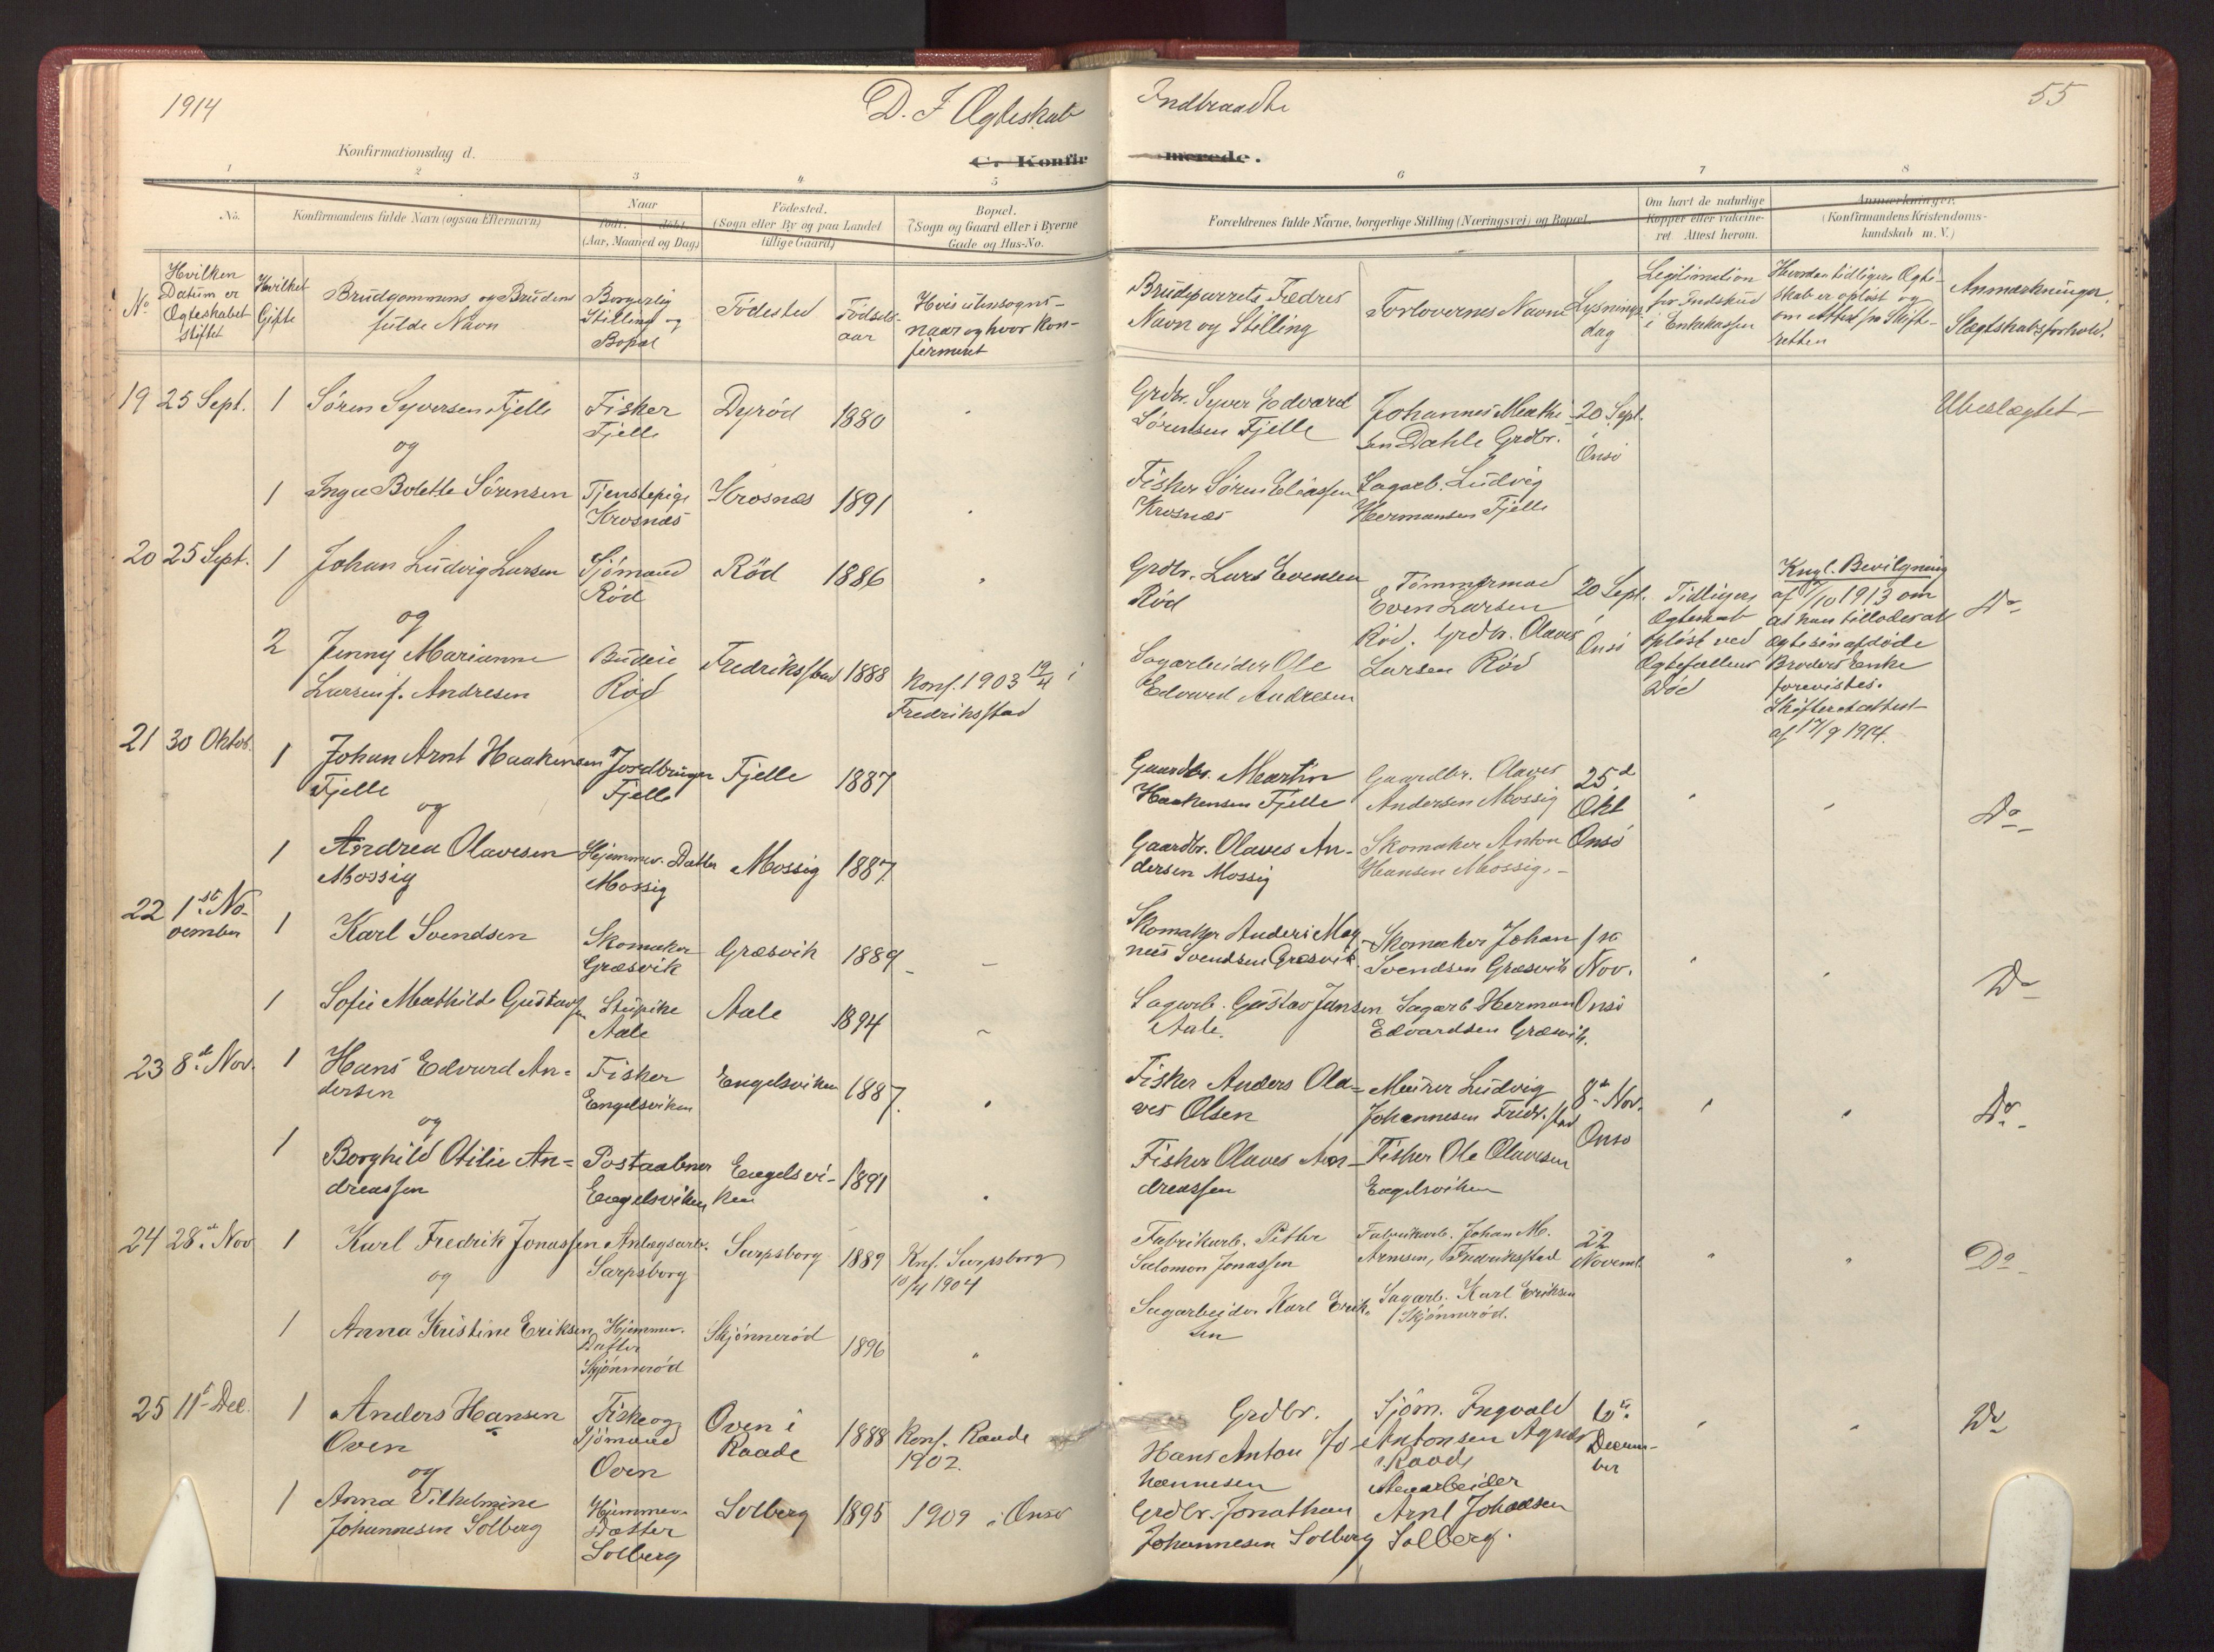 1914
D. I Ægteskab Indtraadte
55
Konfirmationsdag d.
C. Konfirmerede.
1 2 3 4 5 6 7 8
No.
Konfirmandens fulde Navn (ogsaa Efternavn)
Naar
født. døbt.
(Aar, Maaned og Dag)
Fødested.
(Sogn eller By og paa Landet
tillige Gaard)
Bopæl.
(Sogn og Gaard eller i Byerne
Gade og Hus-No.
Forældrenes fulde Navne, borgerlige Stilling (Næringsvei) og Bopæl.
Om havt de naturlige
Kopper eller vakcine-
ret. Attest herom.
Anmærkninger.
(Konfirmandens Kristendoms-
kundskab m. V.)
No
Hvilken
Datum er
Ægteskabet
stiftet
Hvilket
Gifte
Brudgommens og Brudens
fulde Navn
Borgerlig
Stilling og
Bopæl
Födested
Födsels-
aar
Hvis utensogns-
naar og hvor kon-
firmeret
Brudeparrets Fædres
Navn og Stilling
Forlovernes Navne
Lysnings-
dag
Legitimation
for Indskud
i Enkekassen
Hvordan tidligere Ægte-
skab er oplöst og
om Attest fra Skifte-
retten
Anmærkninger.
Slægtskabsforhold.
19 25 Sept. 1 Sören Syversen Fjelle
Fisker
Fjelle
Dyröd 1880
Grdbr. Syver Edvard
Sörensen Fjelle
Johannes Mathi-
sen Dahle Grdbr.
20 Sept.
Onsö
Ubeslægtet
og
1 Inga Bolette Sörensen
Tjenstepige
Krosnæs
Krosnæs 1891
Fisker Sören Eliassen
Krosnæs
Sagarb. Ludvig
Hermansen Fjelle
20 25 Sept. 1 Johan Ludvig Larsen
Sjömand
Röd
Röd 1886
Grdbr. Lars Evensen
Röd
Tömmermand
Even Larsen
Röd. Grdbr. Olaves
Larsen Röd
20 Sept.
Onsö
Tidligere
Ægteskab
oplöst ved
Ægtefællens
Död
Kngl. Bevilgning
af 17/10 1913 om
at han tillodes at
ægte sin afdöde
Broders Enke
forevistes.
Skifteretsattest
af 17/9 1914.
Do
og
2 Jenny Marianne
Larsen f. Andresen
Budeie
Röd
Fredriksstad 1888
Konf. 1903 19/4 i
Fredriksstad
Sagarbeider Ole
Edvard Andresen
21 30 Oktob. 1 Johan Arnt Haakensen
Fjelle
Jordbruger
Fjelle
Fjelle 1887
Gaardbr. Martin
Haakensen Fjelle
Gaardbr. Olaves
Andersen Mossig
25d
Okt
Onsö
Do
og
1 Andrea Olavesen
Mossig
Hjemmev. Datter
Mossig
Mossig 1887.
Gaardbr. Olaves An-
dersen Mossig
Skomaker Anton
Hansen Mossig.
22 1st No-
vember
1 Karl Svendsen
Skomaker
Græsvik
Græsvik 1889
Skomaker Anders Mag-
nus Svendsen Græsvik
Skomaker Johan
Svendsen Græsvik
1st
Nov.
Onsö
Do
1 Sofie Mathilde Gustavsen
Stupike
Aale
Aale 1894
Sagarb. Gustav Jansen
Aale.
Sagarb Herman
Edvardsen Græsvik.
23 8d Nov. 1 Hans Edvard An-
dersen
Fisker
Engelsviken
Engelsviken 1887.
Fisker Anders Ola-
ves Olsen
Murer Ludvig
Johannesen Fredr.stad
8d Nov.
Onsö
Do
og
1 Borghild Otilie An-
dreassen
Postaabner
Engelsviken
Engelsvi-
ken
1891
Fisker Olaves An-
dreassen
Fisker Ole Olavesen
Engelsviken
24 28d Nov 1 Karl Fredrik Jonassen
Anlægsarb.
Sarpsborg
Sarpsborg 1889
Knf. Sarpsborg
10/4 1904
Fabrikarb. Petter
Salomon Jonassen
Fabrikarb. Johan M.
Arnesen, Fredriksstad
22
Novemb.
Do
og
1 Anna Kristine Eriksen
Hjemmev.
Datter
Skjönneröd
Skjönneröd 1896
Sagarbeider Karl Erik-
sen
Sagarb. Karl Eriksen
Skjönneröd.
25 11d Dec. 1 Anders Hansen
Oven
Fisker og
Sjömand
Oven
Oven i
Raade
1888
Konf. Raade
1902.
Grdbr.
Hans Anton Jo-
hannesen
Sjöm. Ingvald
Antonsen Agnes
i Raade
6d
Decem-
ber
Do
og
1 Anna Vilhelmine
Johannesen Solberg
Hjemmev.
Datter
Solberg
Solberg 1895 1909 i Onsö
Grdbr. Jonathan
Johannesen Solberg
Arnt Johansen
Solberg.